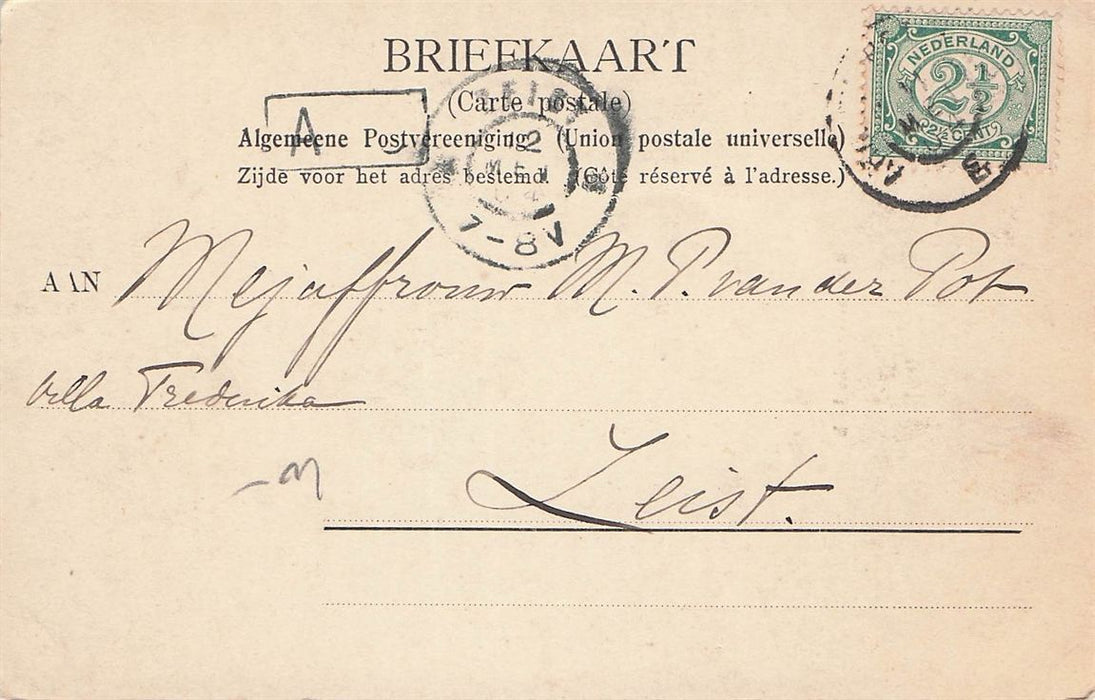 BRIEFKAART
(Carte postale)
Algemeene Postvereeniging (Union postale universelle)
Zijde voor het adres bestemd. (Côté réservé à l'adresse.)
NEDERLAND
2½
2½ CENT
A
ZEIST
12
MEI
04
7-8V
AAN Mejaffrouw M. P. van der Pot
Villa Frederika
Zeist.